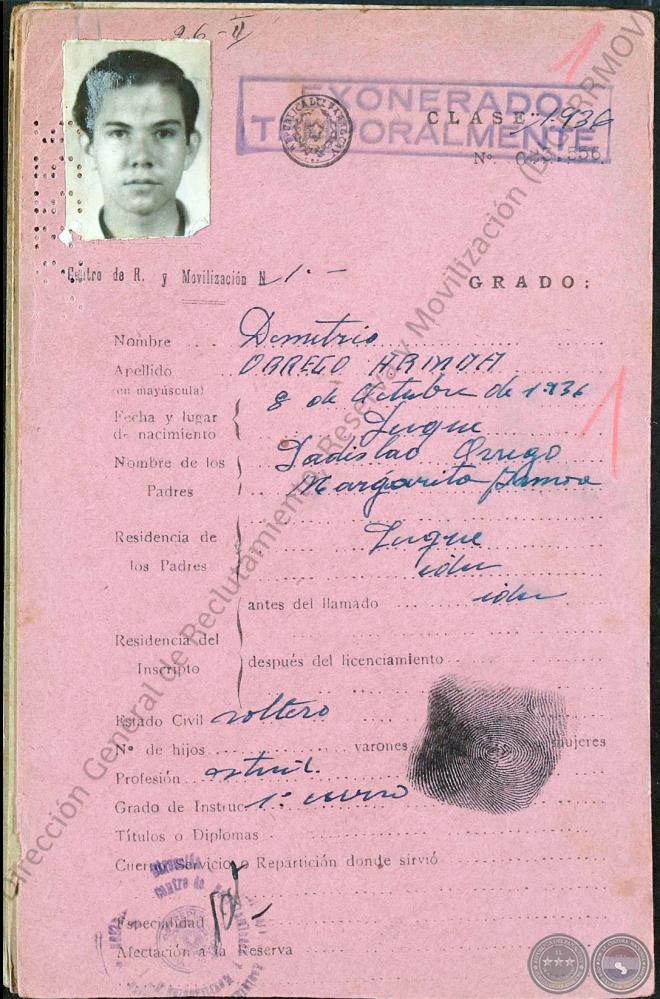 26-II
1
EXONERADO
TEMPORALMENTE
REPUBLICA DEL PARAGUAY
CLASE 1.936
Nº
Centro de R. y Movilización N 1.-
GRADO:
Nombre Demetrio
Apellido ORREGO ARMOA
(en mayúscula)
Fecha y lugar de nacimiento 8 de Octubre de 1.936
Luque
Nombre de los Padres Ladislao Orrego
Margarita Armoa
Residencia de los Padres Luque
idm
antes del llamado idm
Residencia del Inscripto
después del licenciamiento
Estado Civil soltero
Nº de hijos varones mujeres
Profesión estud.
Grado de Instruc 1º curso
Títulos o Diplomas
Cuerpo Servicio o Repartición donde sirvió
Especialidad
Afectación a la Reserva
Dirección General de Reclutamiento, Reserva y Movilización